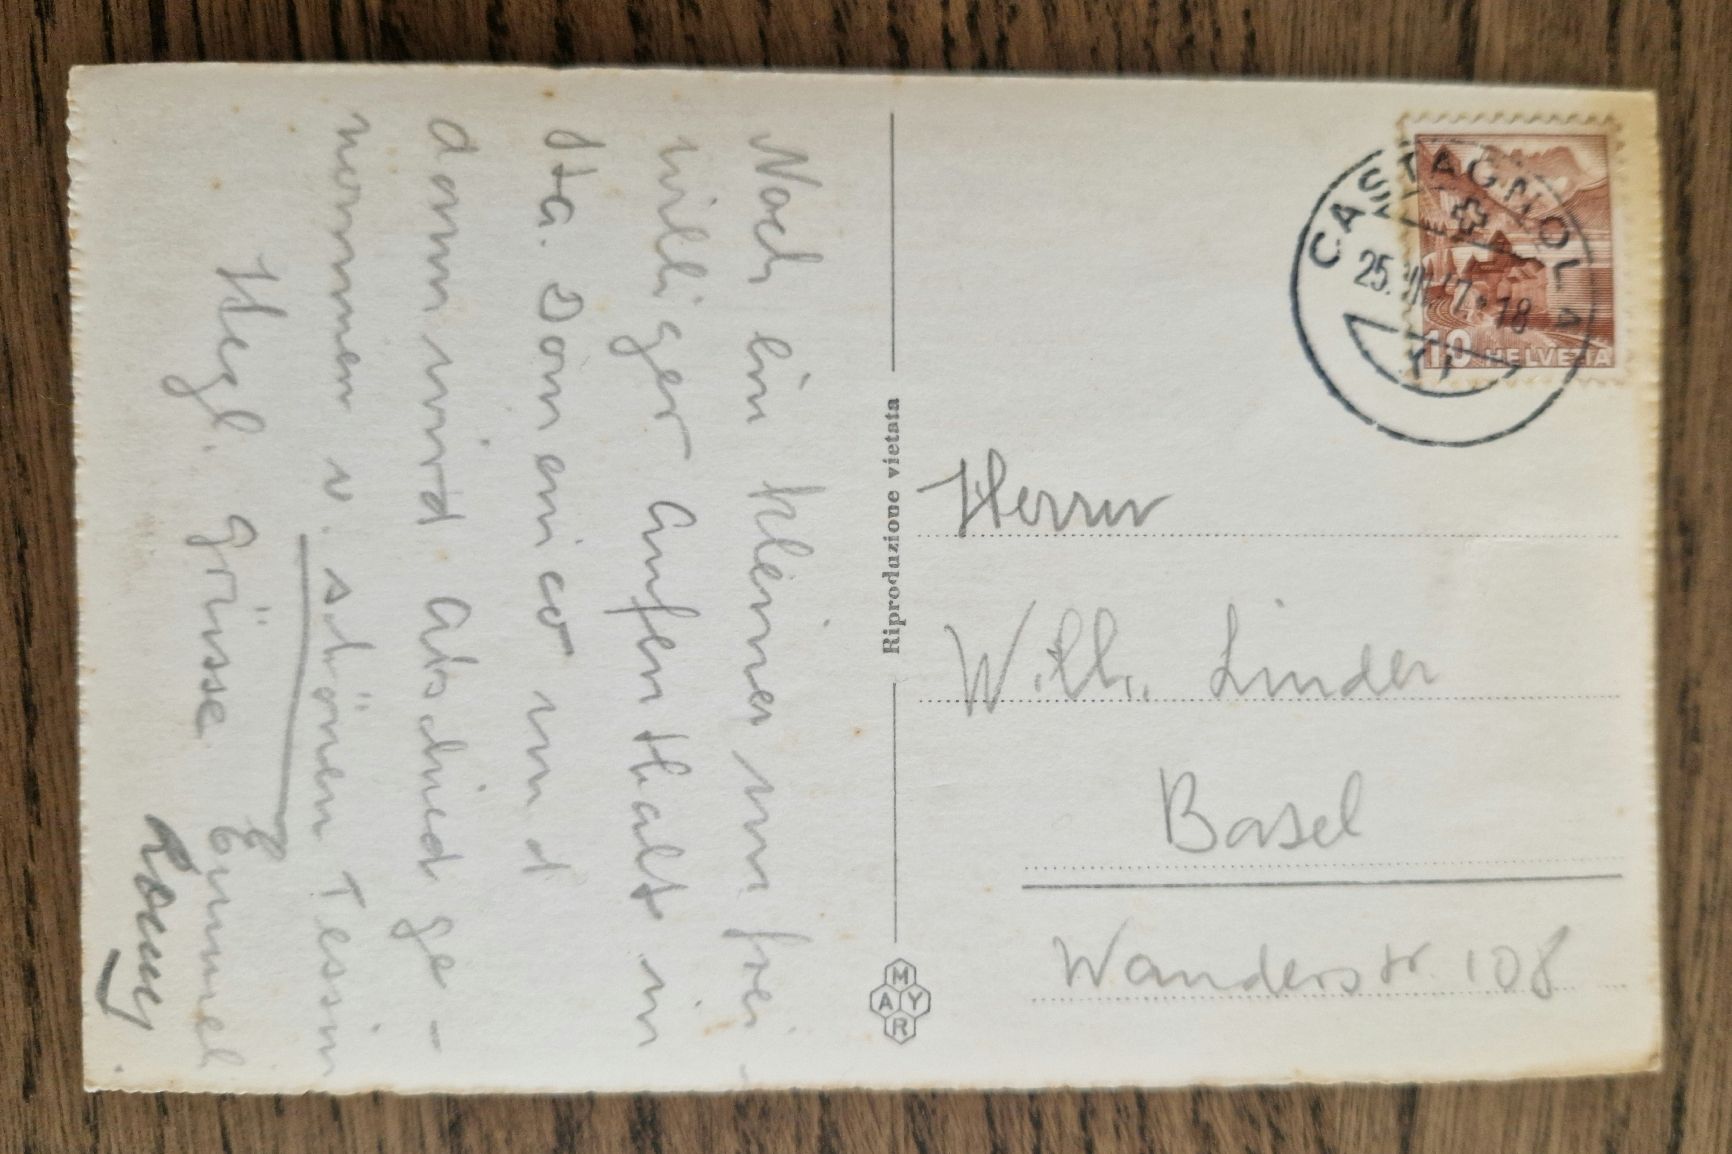 Noch ein kleiner unfrei-
williger Aufenthalt in
Sta. Domenico und
dann wird Abschied ge-
nommen v. schönen Tessin
Herzl. Grüsse
Romy
Riproduzione vietata
MAYR
CASTAGNOLA
25. VIII 47 • 18
10 HELVETIA
Herrn
Wilh. Linder
Basel
Wanderstr. 108